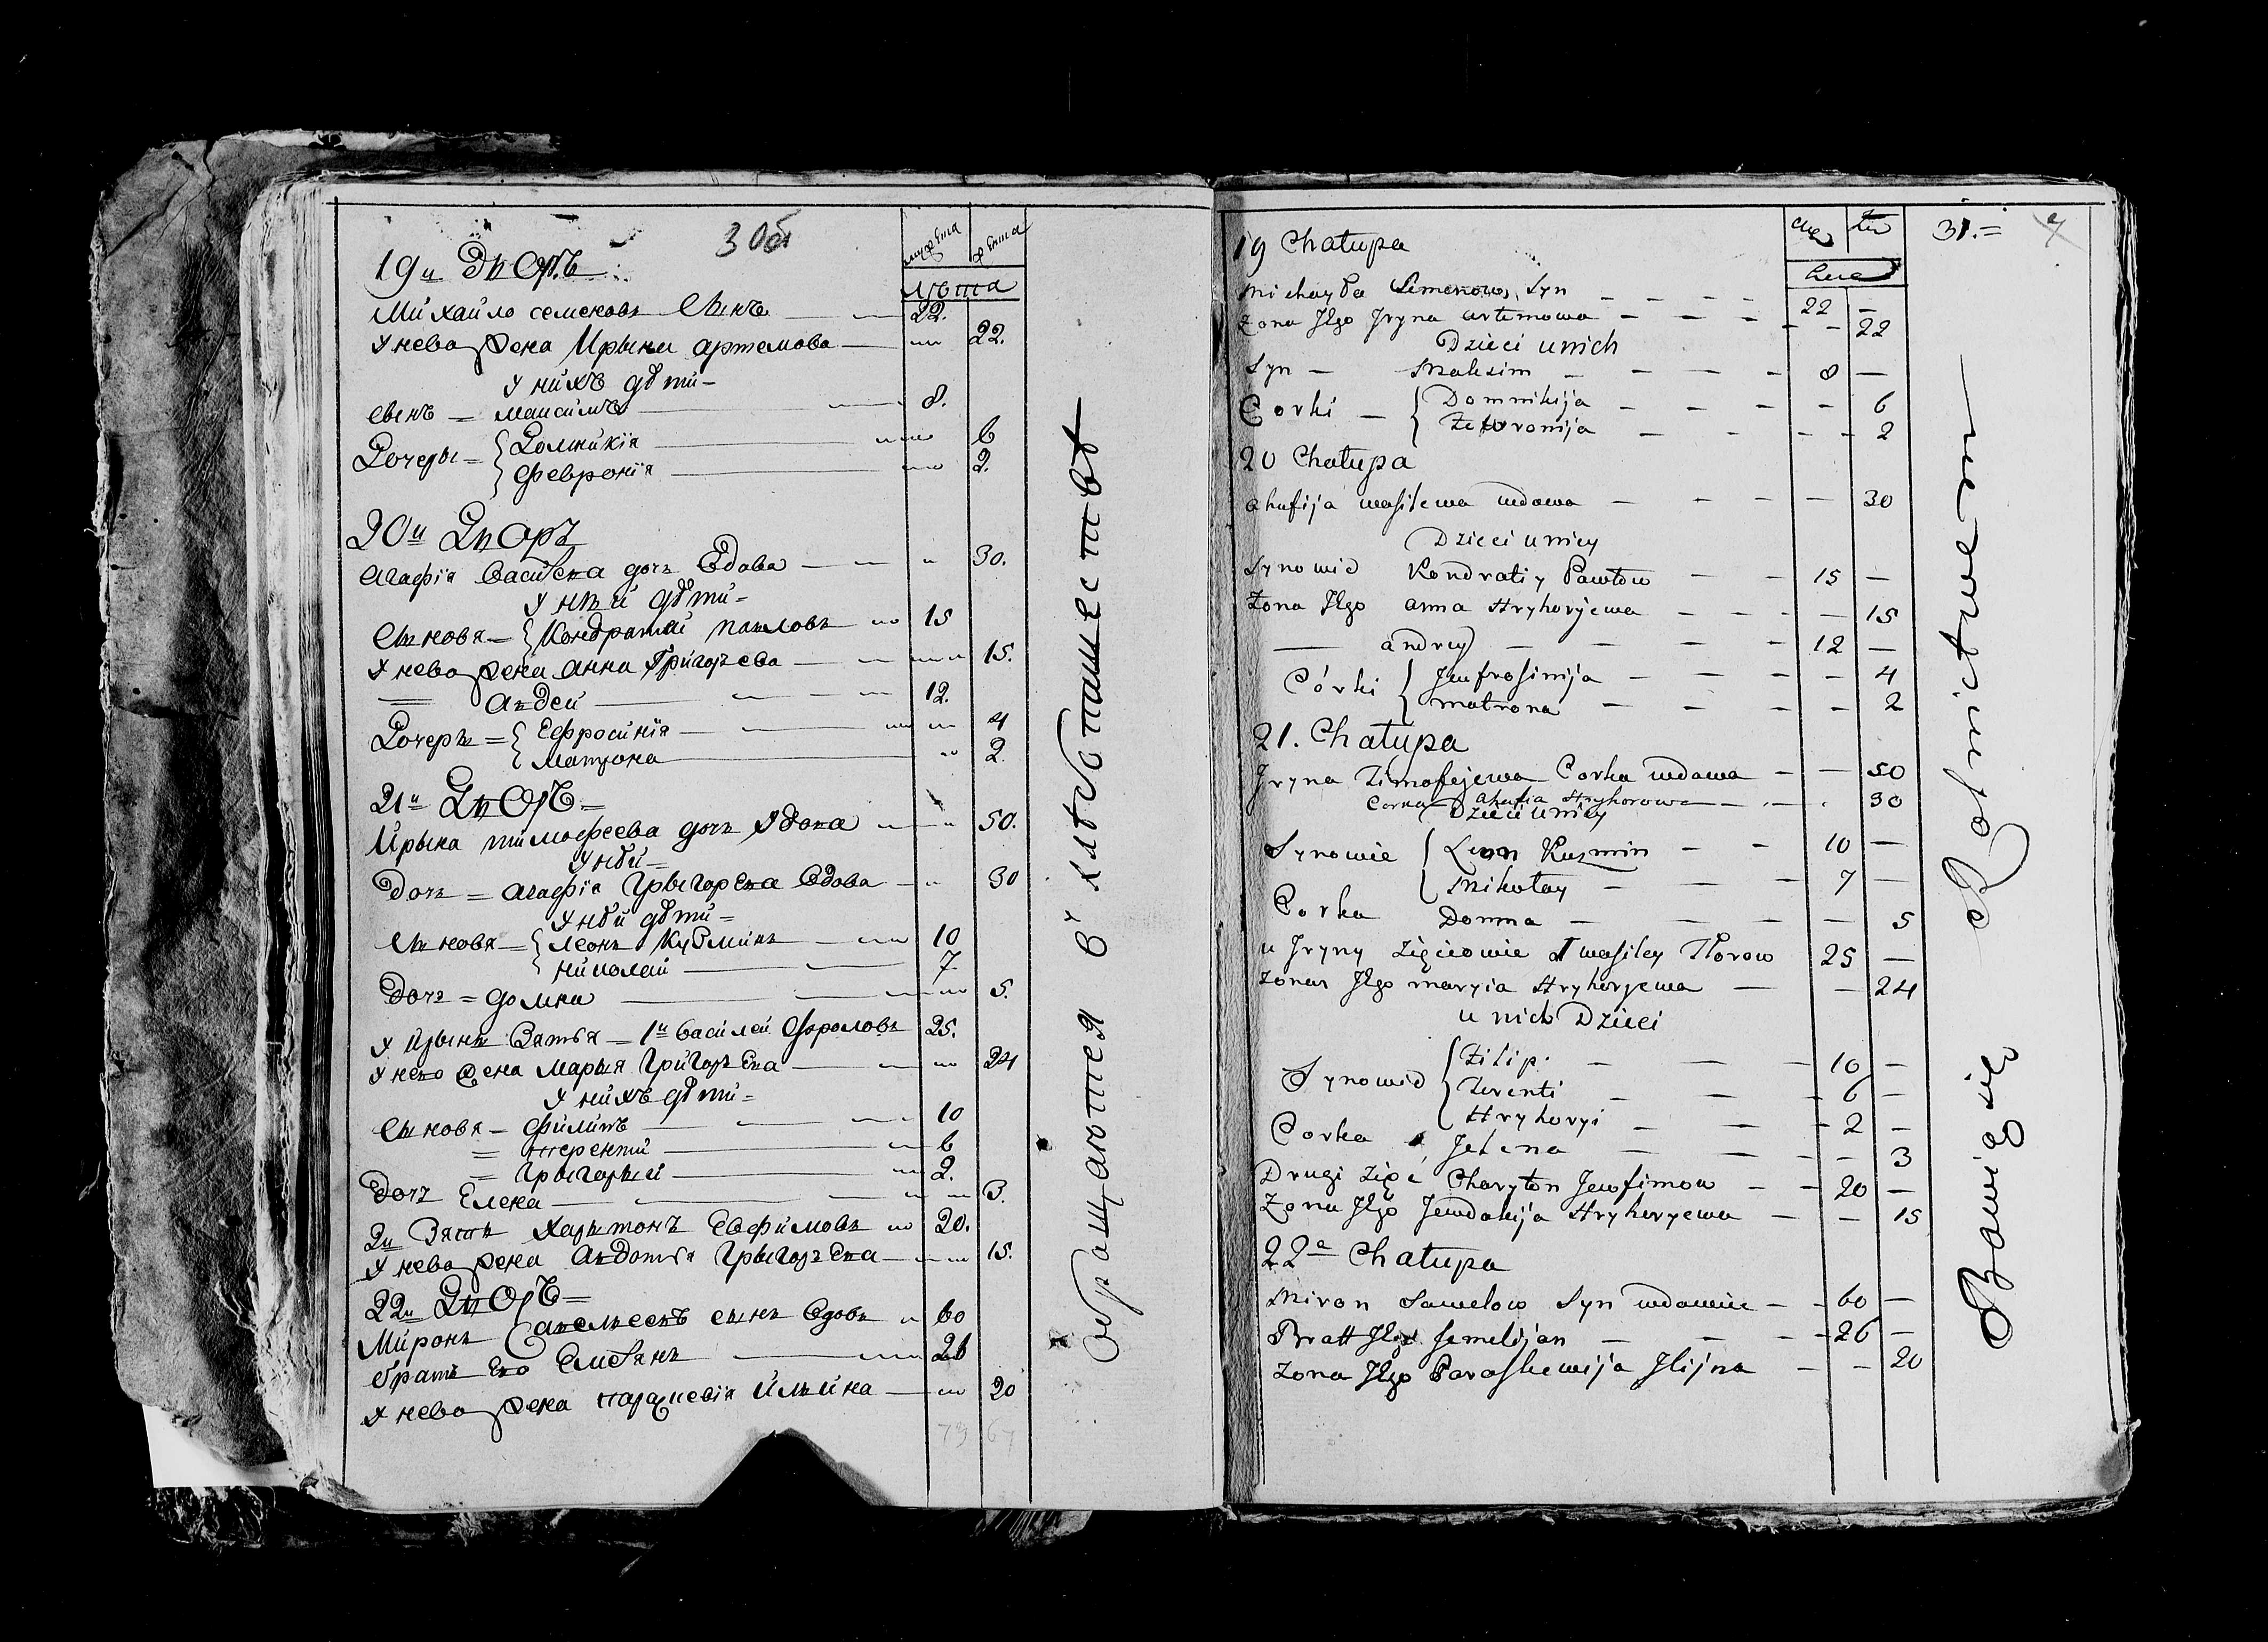 30об
19й Дворъ
мужеска
женска
Лѣта
Михайло семеновъ Сынъ 22.
У нево жена Ирына артемова 22.
У нихъ дѣти
Сынъ = Максимъ 8.
Дочеры = Домникія 6
Февронія 2.
20й Дворъ
Агафія Васильева дочь Вдова 30.
У ней дѣти =
Сыновя = Кондратій павловъ 15
У нево жена анна Григорьева 15.
= Андей 12.
Дочеръ = Ефросинія 4
Матрона 2.
21й Дворъ =
Ирына тимофеева дочь Вдова 50.
У ней =
Дочь = агафія Грыгорева Вдова 30
У ней дѣти =
Сыновя = леонъ Кузминъ 10
николай 7.
Дочь = домна 5.
У Ирыны Зятья = 1й Василей Фроловъ 25.
У нево жена Марыя Григорьева 24
У нихъ дѣти =
Сыновя = филипъ 10
= терентій 6
= Грыгорый 2.
Дочь Елена 3.
2й Зять Харытонъ Евфимовъ 20.
У нево жена Авдотья Грыгорьева 15.
22й Дворъ =
Миронъ Савельевъ сынъ Вдовъ 60
братъ Ево Емельянъ 26
У нево жена параскевія Ильина 20
73 67
Обращаются в хлѣбопашествѣ
31.=
19 Chałupa
Lata
Michayła Semenow Syn 22 —
Zona Jego Jryna artemowa — 22
Dzieci u nich
Syn — Maksim 8 —
Corki — Domnikija — 6
Fewronija — 2
20 Chałupa
ahafija wasilewa wdowa — 30
Dzieci u niey
Synowie Kondratiy Pawłow 15 —
Zona Jego anna Hryhoryewa — 15
— andrey 12 —
Córki Jewfrosinija — 4
matrona — 2
21. Chałupa
Jryna Timofejewa Corka wdowa — 50
Corka ahafia Hryhorowa — 30
Dzieci u niey
Synowie Leon Kuzmin 10 —
Mikołay 7 —
Corka Domna — 5
u Jryny Zięciowie 1 wasiley Florow 25 —
Zona Jego maryia Hryhoryewa — 24
u nich Dzieci
Synowie Filip 10 —
Terenti 6 —
Hryhoryi 2 —
Corka Jelena — 3
Drugi Zięć Charyton Jewfimow 20 —
Zona Jego Jewdokija Hryhoryewa — 15
22a Chałupa
Miron Sawelow Syn wdowiec 60 —
Bratt Jego Jemelijan 26 —
Zona Jego Paraskewija Jlijna — 20
Bawią się Rolnictwem